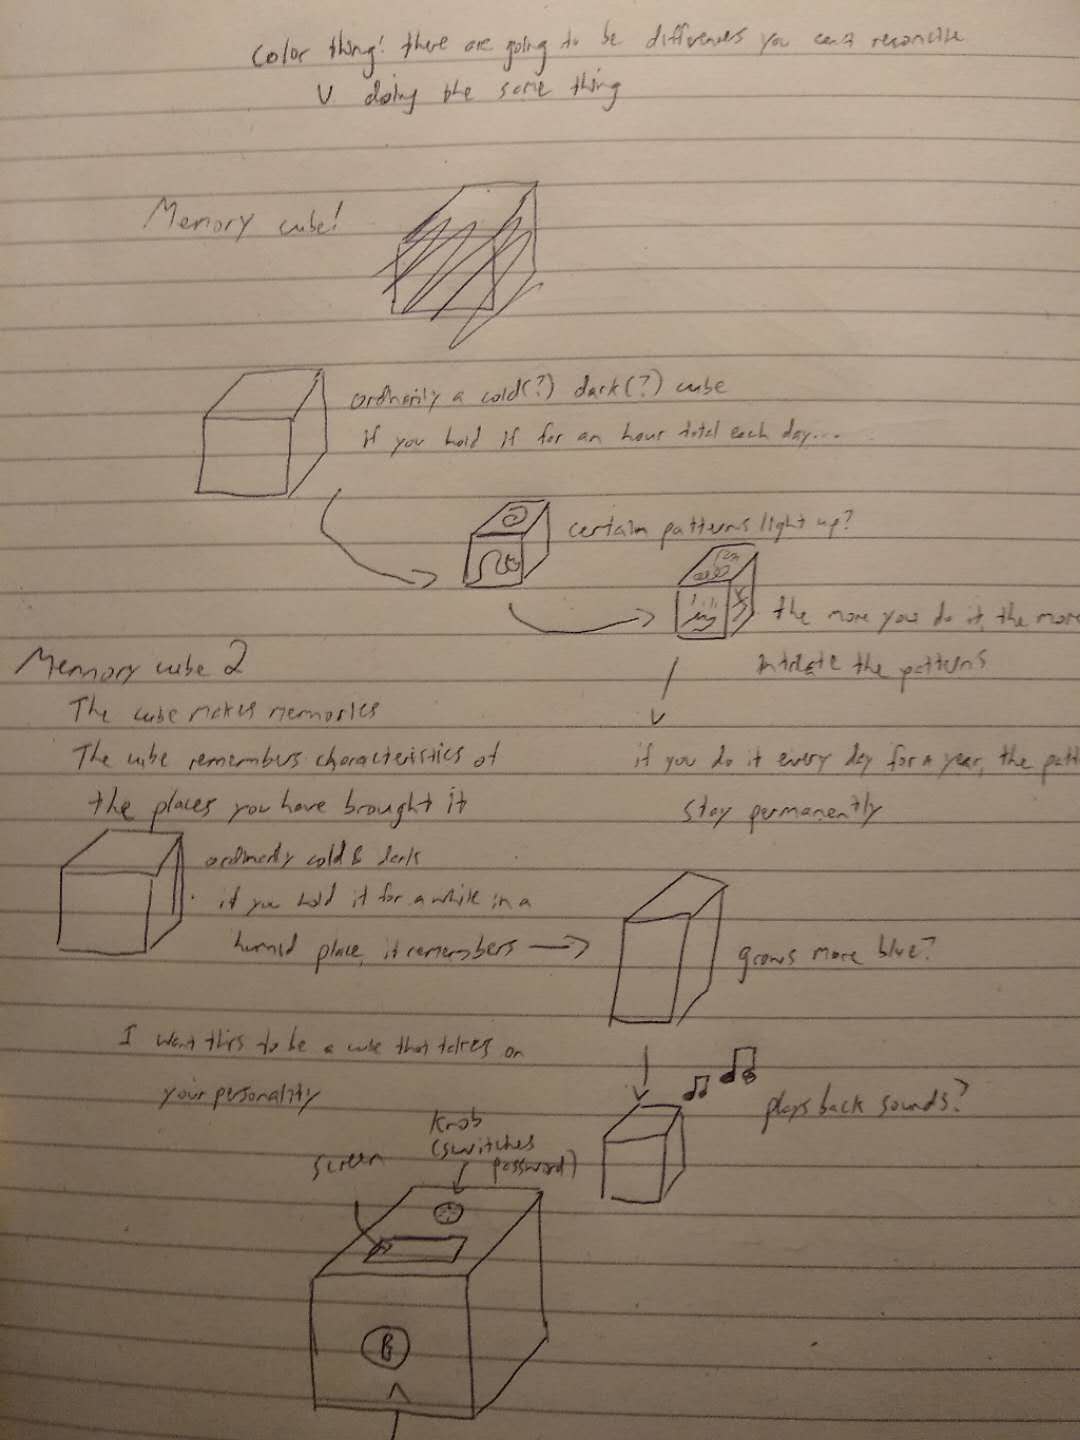 Color thing! there are going to be differences you can't reconcile
V doing the same thing
Memory cube!
ordinarily a cold(?) dark(?) cube
if you hold it for an hour total each day...
certain patterns light up?
the more you do it, the more
intricate the patterns
if you do it every day for a year, the patt
stay permanently
Memory cube 2
The cube makes memories
The cube remembers characteristics of
the places you have brought it
ordinarily cold & dark
if you hold it for a while in a
humid place, it remembers
grows more blue?
plays back sounds?
I want this to be a cube that takes on
your personality
Knob
(switches
password)
screen
B